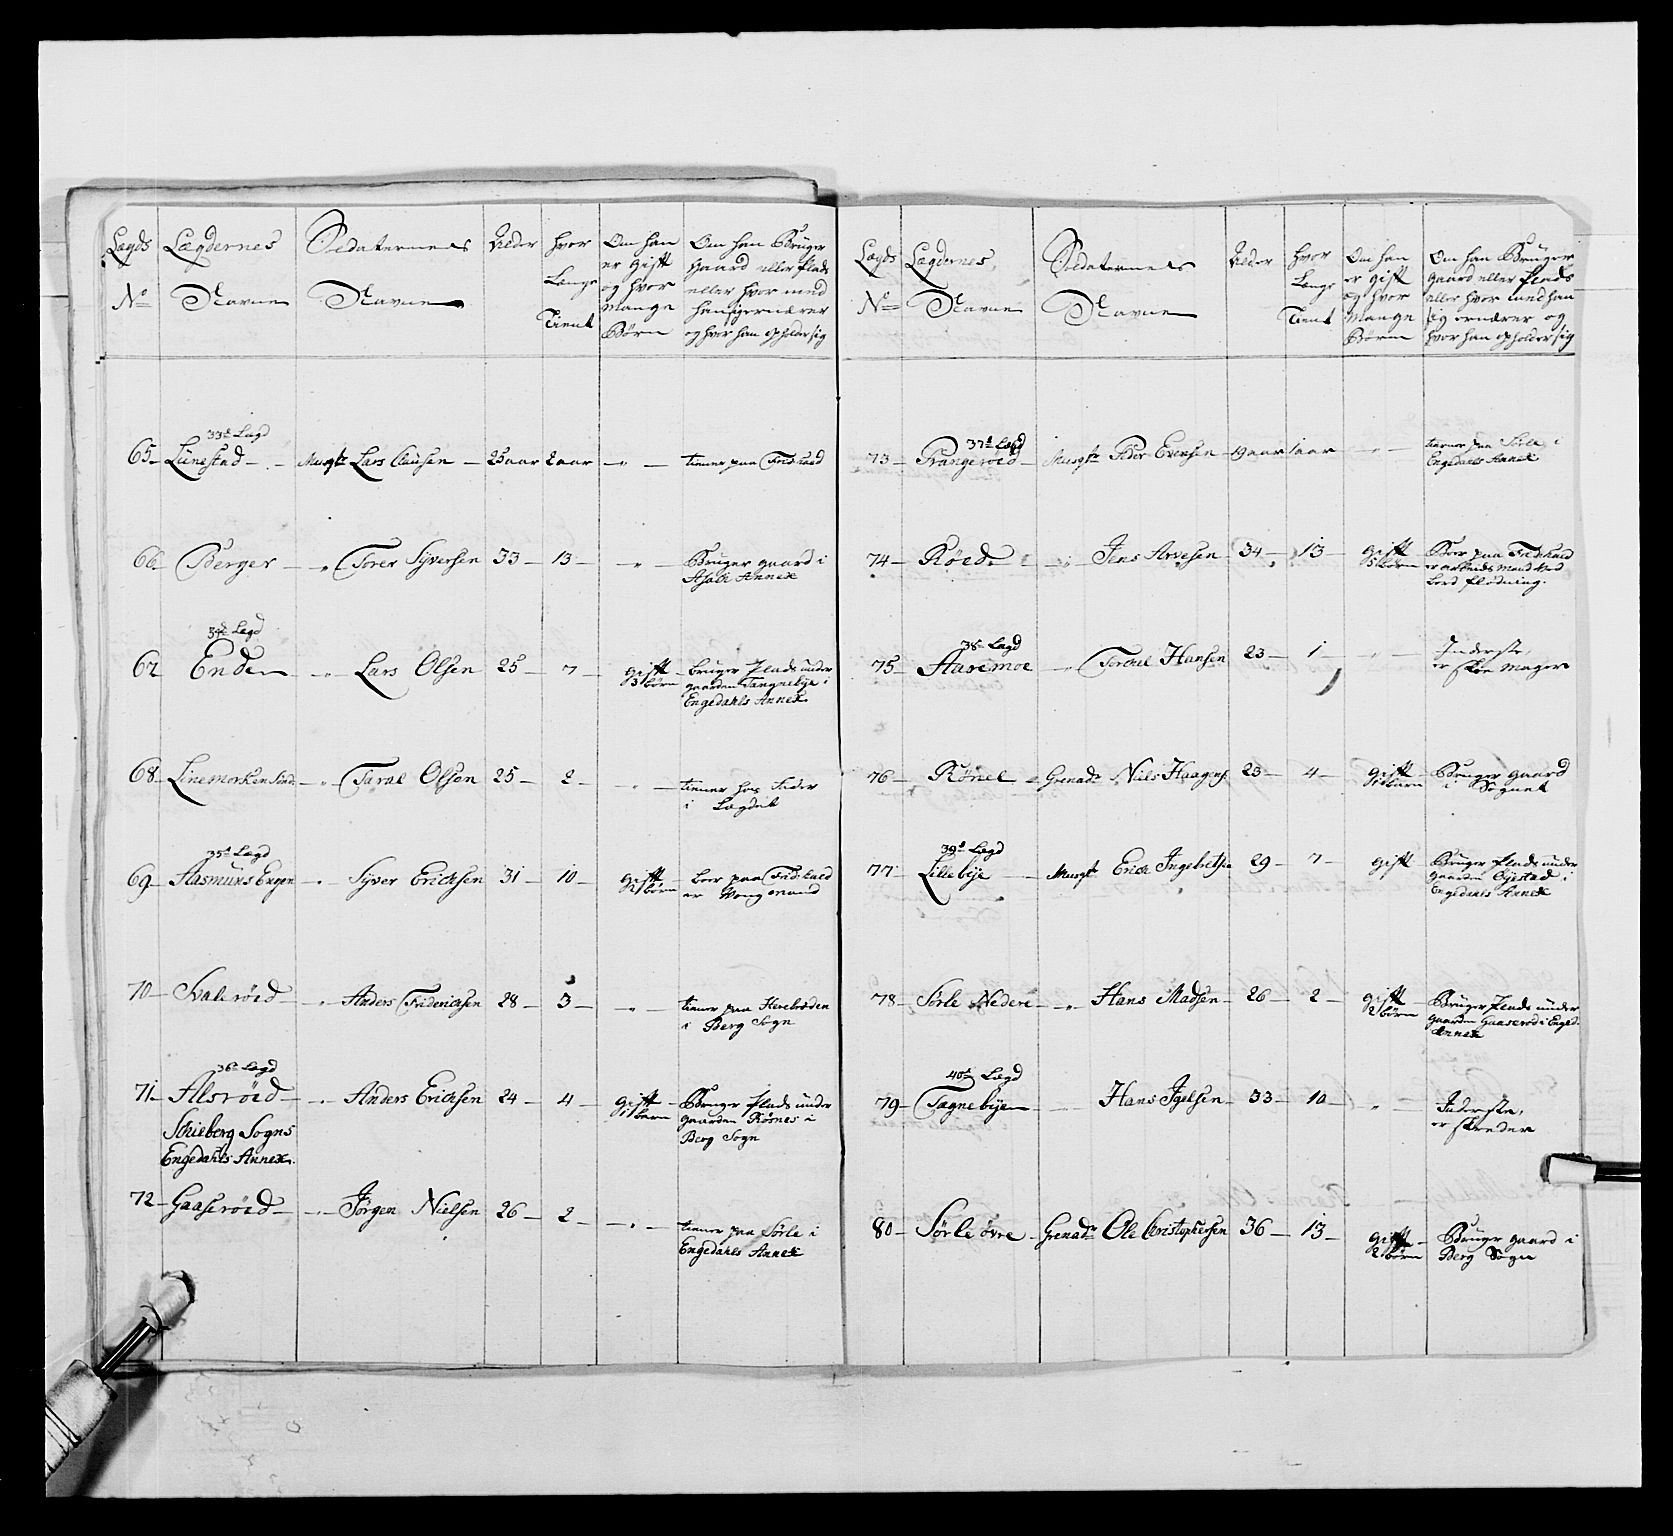 Lægds Lægdernes Soldaternes Alder hvor Om han Om han Bruger
er gift Gaard eller Plads
Længe og hvor eller hvor med
No Navne Navne mange han sig ernærer
Tient Børn og hvor han opholder sig
33te Lægd
65 Lünestad Musqtr Lars Clausen 25 aar 2 aar " tiener paa Fridrhald
66 Berger " Torer Syversen 33 13 " Bruger gaard i
Asak Annex
34de Lægd
67 Ende " Lars Olsen 25 7 gift Bruger Plads under
3 børn gaarden Tangnebye i
Engedahls Annex
68 Linemorken " Taral Olsen 25 2 " tiener hos Fader
i Lægdet
35te Lægd
69 Aasmuns Engen " Syver Erichsen 31 10 gift boer paa Fridrhald
2 børn er Vongmand
70 Svalerøed " Anders Friderichsen 28 3 " tiener paa Herrebrøden
i Berg Sogn
36te Lægd
71 Alsrøed " Anders Erichsen 24 4 gift Bruger Plads under
1 barn gaarden Røsnes i
Berg Sogn
Schieberg Sogns
Engedahls Annex
72 Gaaserøed " Jørgen Nielsen 26 2 " tiener paa Sørle i
Engedahls Annex
Lægds Lægdernes Soldaternes Alder hvor Om han Om han Bruger
er gift Gaard eller Plads
Længe og hvor eller hvor med han
No Navne Navne mange sig ernærer og
Tient Børn hvor han opholder sig
37te Lægd
73 Prangerøed Musqtr Peder Evensen 19 aar 1 aar " tiener paa Sørle i
Engedahls Annex
74 Røed " Jens Arvesen 34 13 gift Boer paa Fridrhald
5 børn er arbeids mand ved
bord flødning.
38te Lægd
75 Aaremoe " Torkel Hansen 23 1 " Inderste,
er Skoe mager
76 Kirnel Grenadr Niels Haagens 23 4 gift Bruger gaard
1 barn i Sognet
39te Lægd
77 Lillebye Musqtr Erich Ingebretsen 29 7 gift Bruger Plads under
gaarden Byestad i
Engedahls Annex
78 Sørle Nedre " Hans Madsen 26 2 gift Bruger Plads under
2 børn gaarden Gaaserød i Enged.
Annex
40te Lægd
79 Tagnebye " Hans Igelsen 33 10 " Inderste,
er skreder
80 Sørle øvre Grenadr Ole Christophersen 36 13 gift Bruger gaard i
2 børn Berg Sogn